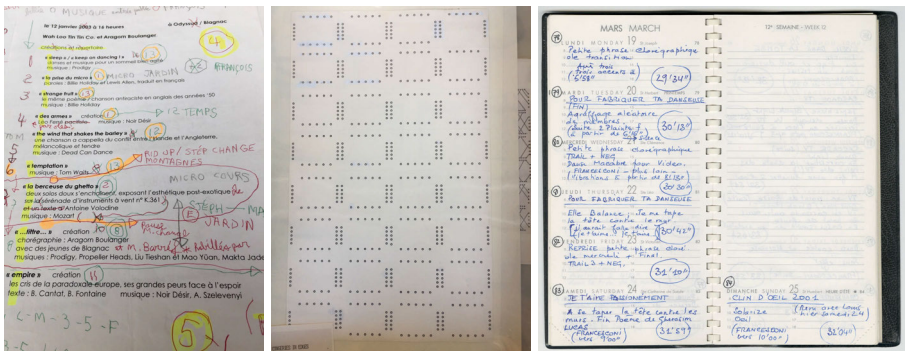 MUSIQUE
le 12 janvier 2003 à 16 heures
à Odyssud / Blagnac
Wah Loo Tin Tin Co. et Aragorn Boulanger
4
créations et répertoire
1 « sleep » / « keep on dancing » 13
musique : Prodigy
22 FRANÇOIS
2 « la prise du micro » MICRO JARDIN
paroles : Billie Holiday et Lewis Allen, traduit en français
3 « strange fruit » 13
le même poème / chanson antiraciste en anglais des années '50
musique : Billie Holiday
12 TEMPS
4 « des armes » création 12
Léo Ferré musique : Noir Désir
« the wind that shakes the barley » 12
une chanson a cappella du conflit entre l'Irlande et l'Angleterre,
mélancolique et tendre
musique : Dead Can Dance
MID UP / STEP CHANGE
MONTAGNES
« temptation » 13
musique : Tom Waits
MICRO COURS
« la berceuse du ghetto » 2
deux solos doux s'enchaînent, exposant l'esthétique post-exotique de
sur la sérénade d'instruments à vent n° K.361
et un texte d'Antoine Volodine
STEPH
musique : Mozart
E JARDIN
« ...littre... » création 8
chorégraphie : Aragorn Boulanger
avec des jeunes de Blagnac
musiques : Prodigy, Propeller Heads, Liu Tieshan et Mao Yüan, Makta Jade
« empire » création 11
les cris de la paradoxale europe, ses grandes peurs face à l'espoir
texte : B. Cantat, B. Fontaine musique : Noir Désir, A. Szelevenyi
L - M - 3 - 5 - F
5
MARS MARCH
12e SEMAINE - WEEK 12
78
LUNDI MONDAY 19
Petite phrase chorégraphique
de transition
29'34"
79
MARDI TUESDAY 20
POUR FABRIQUER TA DANSEUSE
(FIN)
Agrossage aléatoire
de membres.
30'13"
80
MERCREDI WEDNESDAY 21
Petite phrase chorégraphique
TRAIL + NEG
Danse Macabre pour Video.
(FRANCESCONI - plus loin -
Vibrations E partir de 8'18")
30'30"
81
JEUDI THURSDAY 22
POUR FABRIQUER TA DANSEUSE
Elle Balance ; Je me tape
la tête contre le mur
30'42"
82
VENDREDI FRIDAY 23
REPRISE petite phrase
de mercredi + Final
TRAILS + NEG.
31'10"
83
SAMEDI SATURDAY 24
JE T'AIME PASSIONEMENT
A se taper la tête contre les
murs. Fin Poème de Gherasim
LUCAS
(FRANCESCONI
vers 9'00")
31'59"
84
DIMANCHE SUNDAY 25
CLIN D'OEIL 2001
hier samedi 24
(FRANCESCONI
vers 10'00")
32'04"